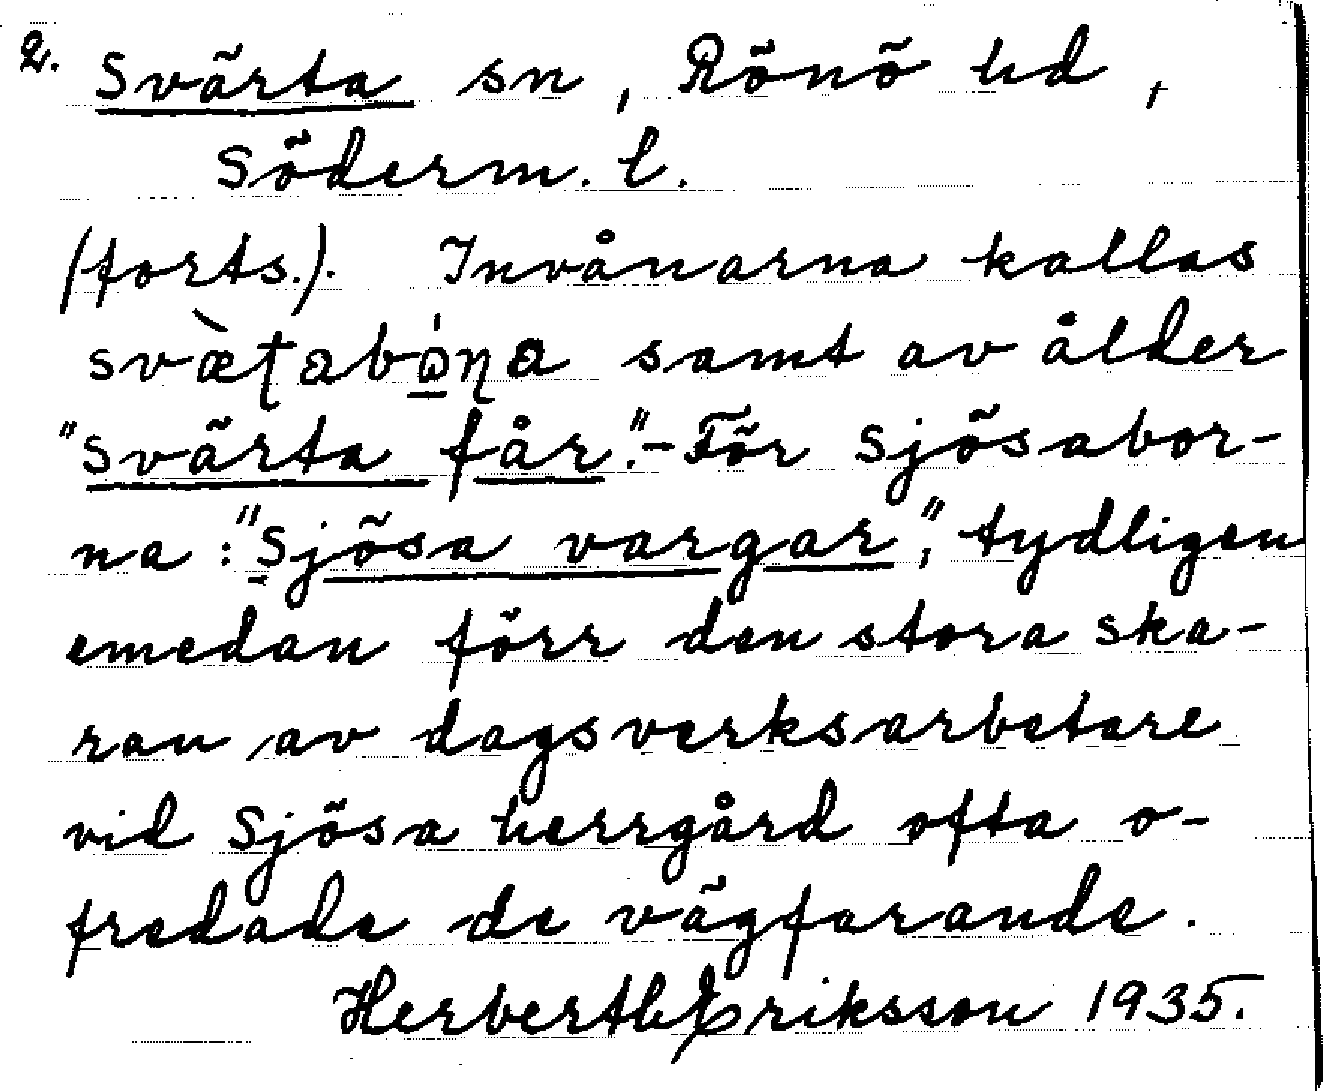 2. Svärta sn, Rönö hd,
Söderm. l.
(forts.). Invånarna kallas
samt av ålder
"Svärta får". - För Sjösabor-
na: "Sjösa vargar", tydligen
emedan förr den stora ska-
ran av dagsverksarbetare
vid Sjösa herrgård ofta o-
fredade de vägfarande.
Herberth Eriksson 1935.